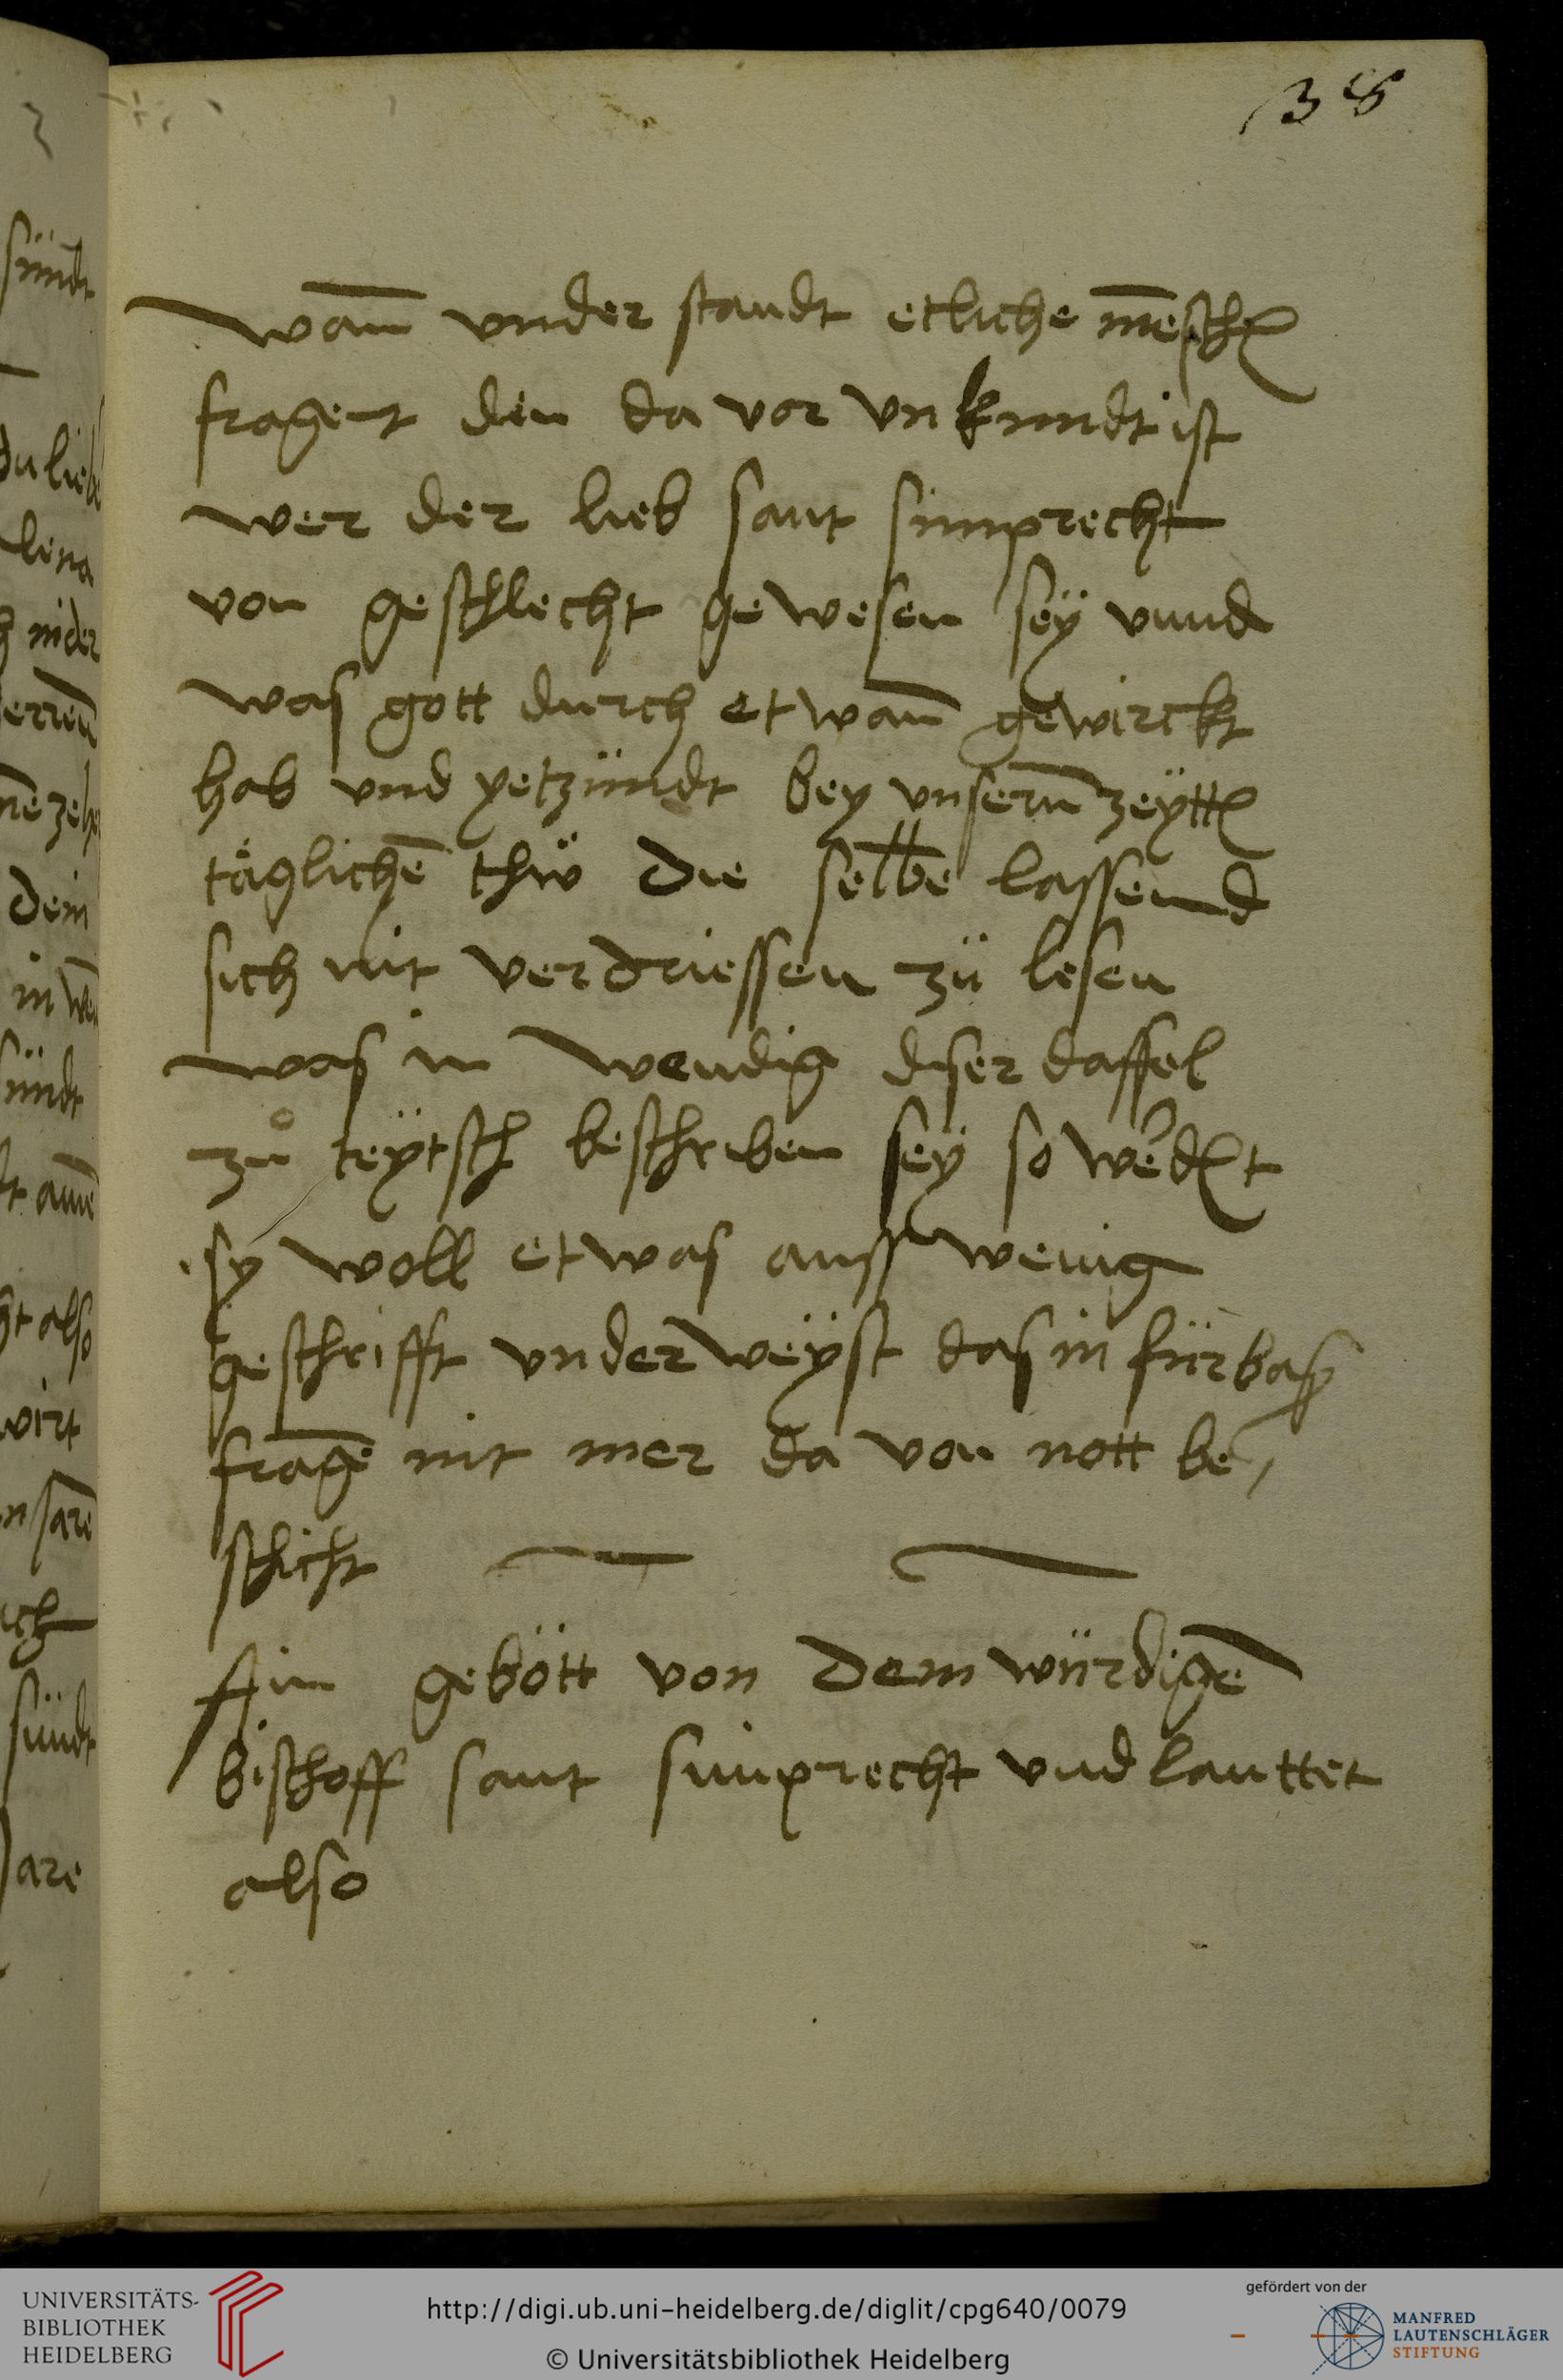 38
wañ vnder standt etliche mēschen
fragent den da vor vnkundt ist
wer der lieb sant simprecht
von geschlecht gewesen seÿ vnnd
was gott durch etwañ gewirckt
hab vnd yetzündt bey vnserñ zeÿtten
täglichē thü die selbē lassend
sich nit verdriessen zü lesen
was in wendig diser daffel
zů teÿtsch beschriben seÿ so werdent
sy woll etwas auss wenig
geschrifft vnderweÿst das in fürbas
fragē nit mer da von nott be
schicht
Ain gebött von dem würdigē
bischoff sant simprecht vnd lauttet
also
sündt
du lieb
lena
nider
erreñ
nē zehe
dem
in
sündt
amē
also
wirt
sündt
are
UNIVERSITÄTS-
BIBLIOTHEK
HEIDELBERG
http://digi.ub.uni-heidelberg.de/diglit/cpg640/0079
© Universitätsbibliothek Heidelberg
gefördert von der
MANFRED
LAUTENSCHLÄGER
STIFTUNG